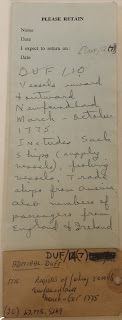 PLEASE RETAIN
Name
Date
I expect to return on:
Date
DUF/10
Vessels inward
& outward
Newfoundland
March - October
1775
Includes Sack
Ships (supply
vessels), fishing
vessels, Trade
ships from America
also numbers of
passengers from
England & Ireland
DUF/ (7)
ADMIRAL DUFF
1775 Register of fishing vessels
Newfoundland
March - Oct 1775